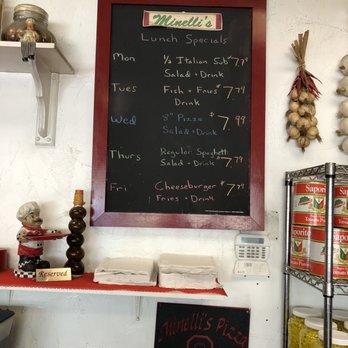 Minelli's
Lunch Specials
Mon ½ Italian Sub $7.79
Salad + Drink
Tues Fish + Fries $7.79
Drink
Wed 8" Pizza $7.99
Salad + Drink
Thurs Regular Spaghetti $7.99
Salad + Drink
Fri Cheeseburger $7.99
Fries + Drink
Saporito
Saporito
Reserved
Minelli's Pizza